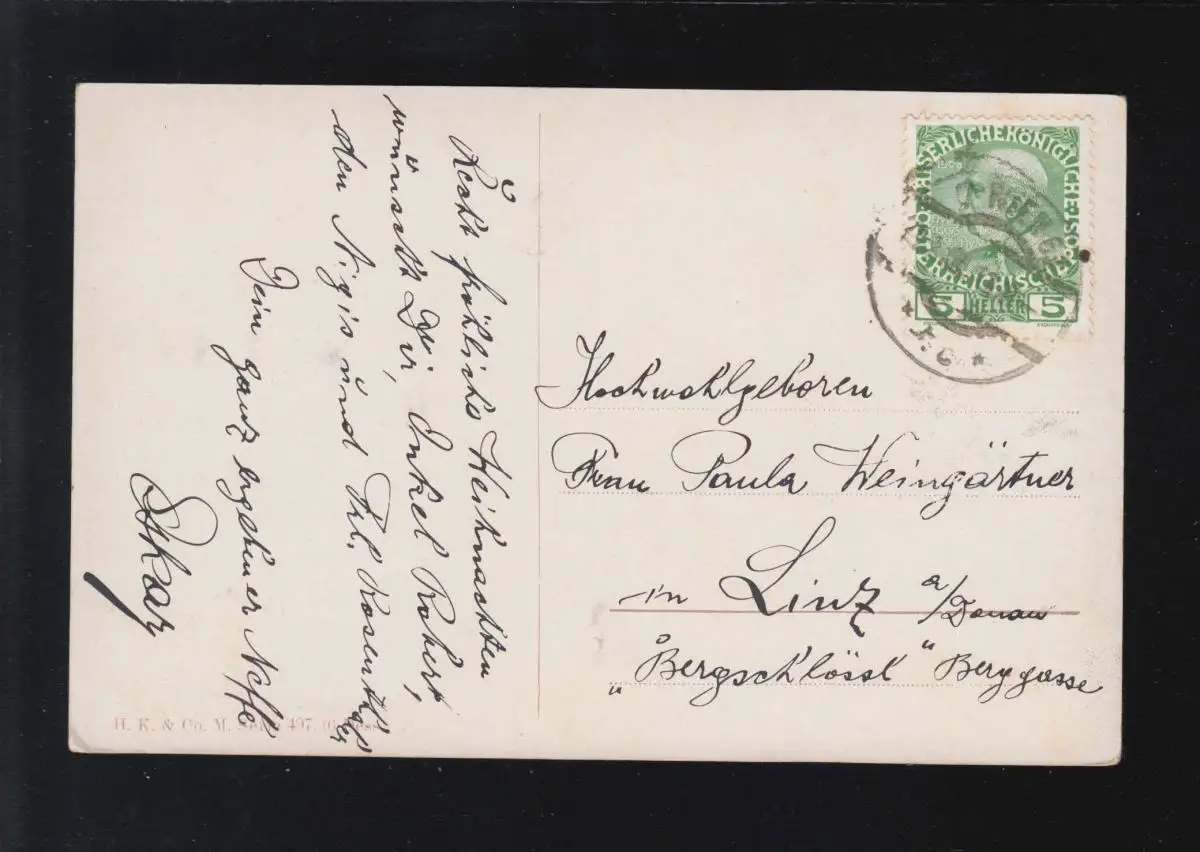 Recht fröhliche Weihnachten
wünscht Dir, Onkel Robert,
den Nigis und Frl. Rosentha
Dein ganz ergebener Neffe
Oskar
H. K. & Co. M. Serie 497.
KAISERLICHE KÖNIGLICHE ÖSTERREICHISCHE POST
5 HELLER 5
WIEN
Hochwohlgeboren
Frau Paula Weingärtner
in Linz a/Donau
"Bergschlössl" Berggasse